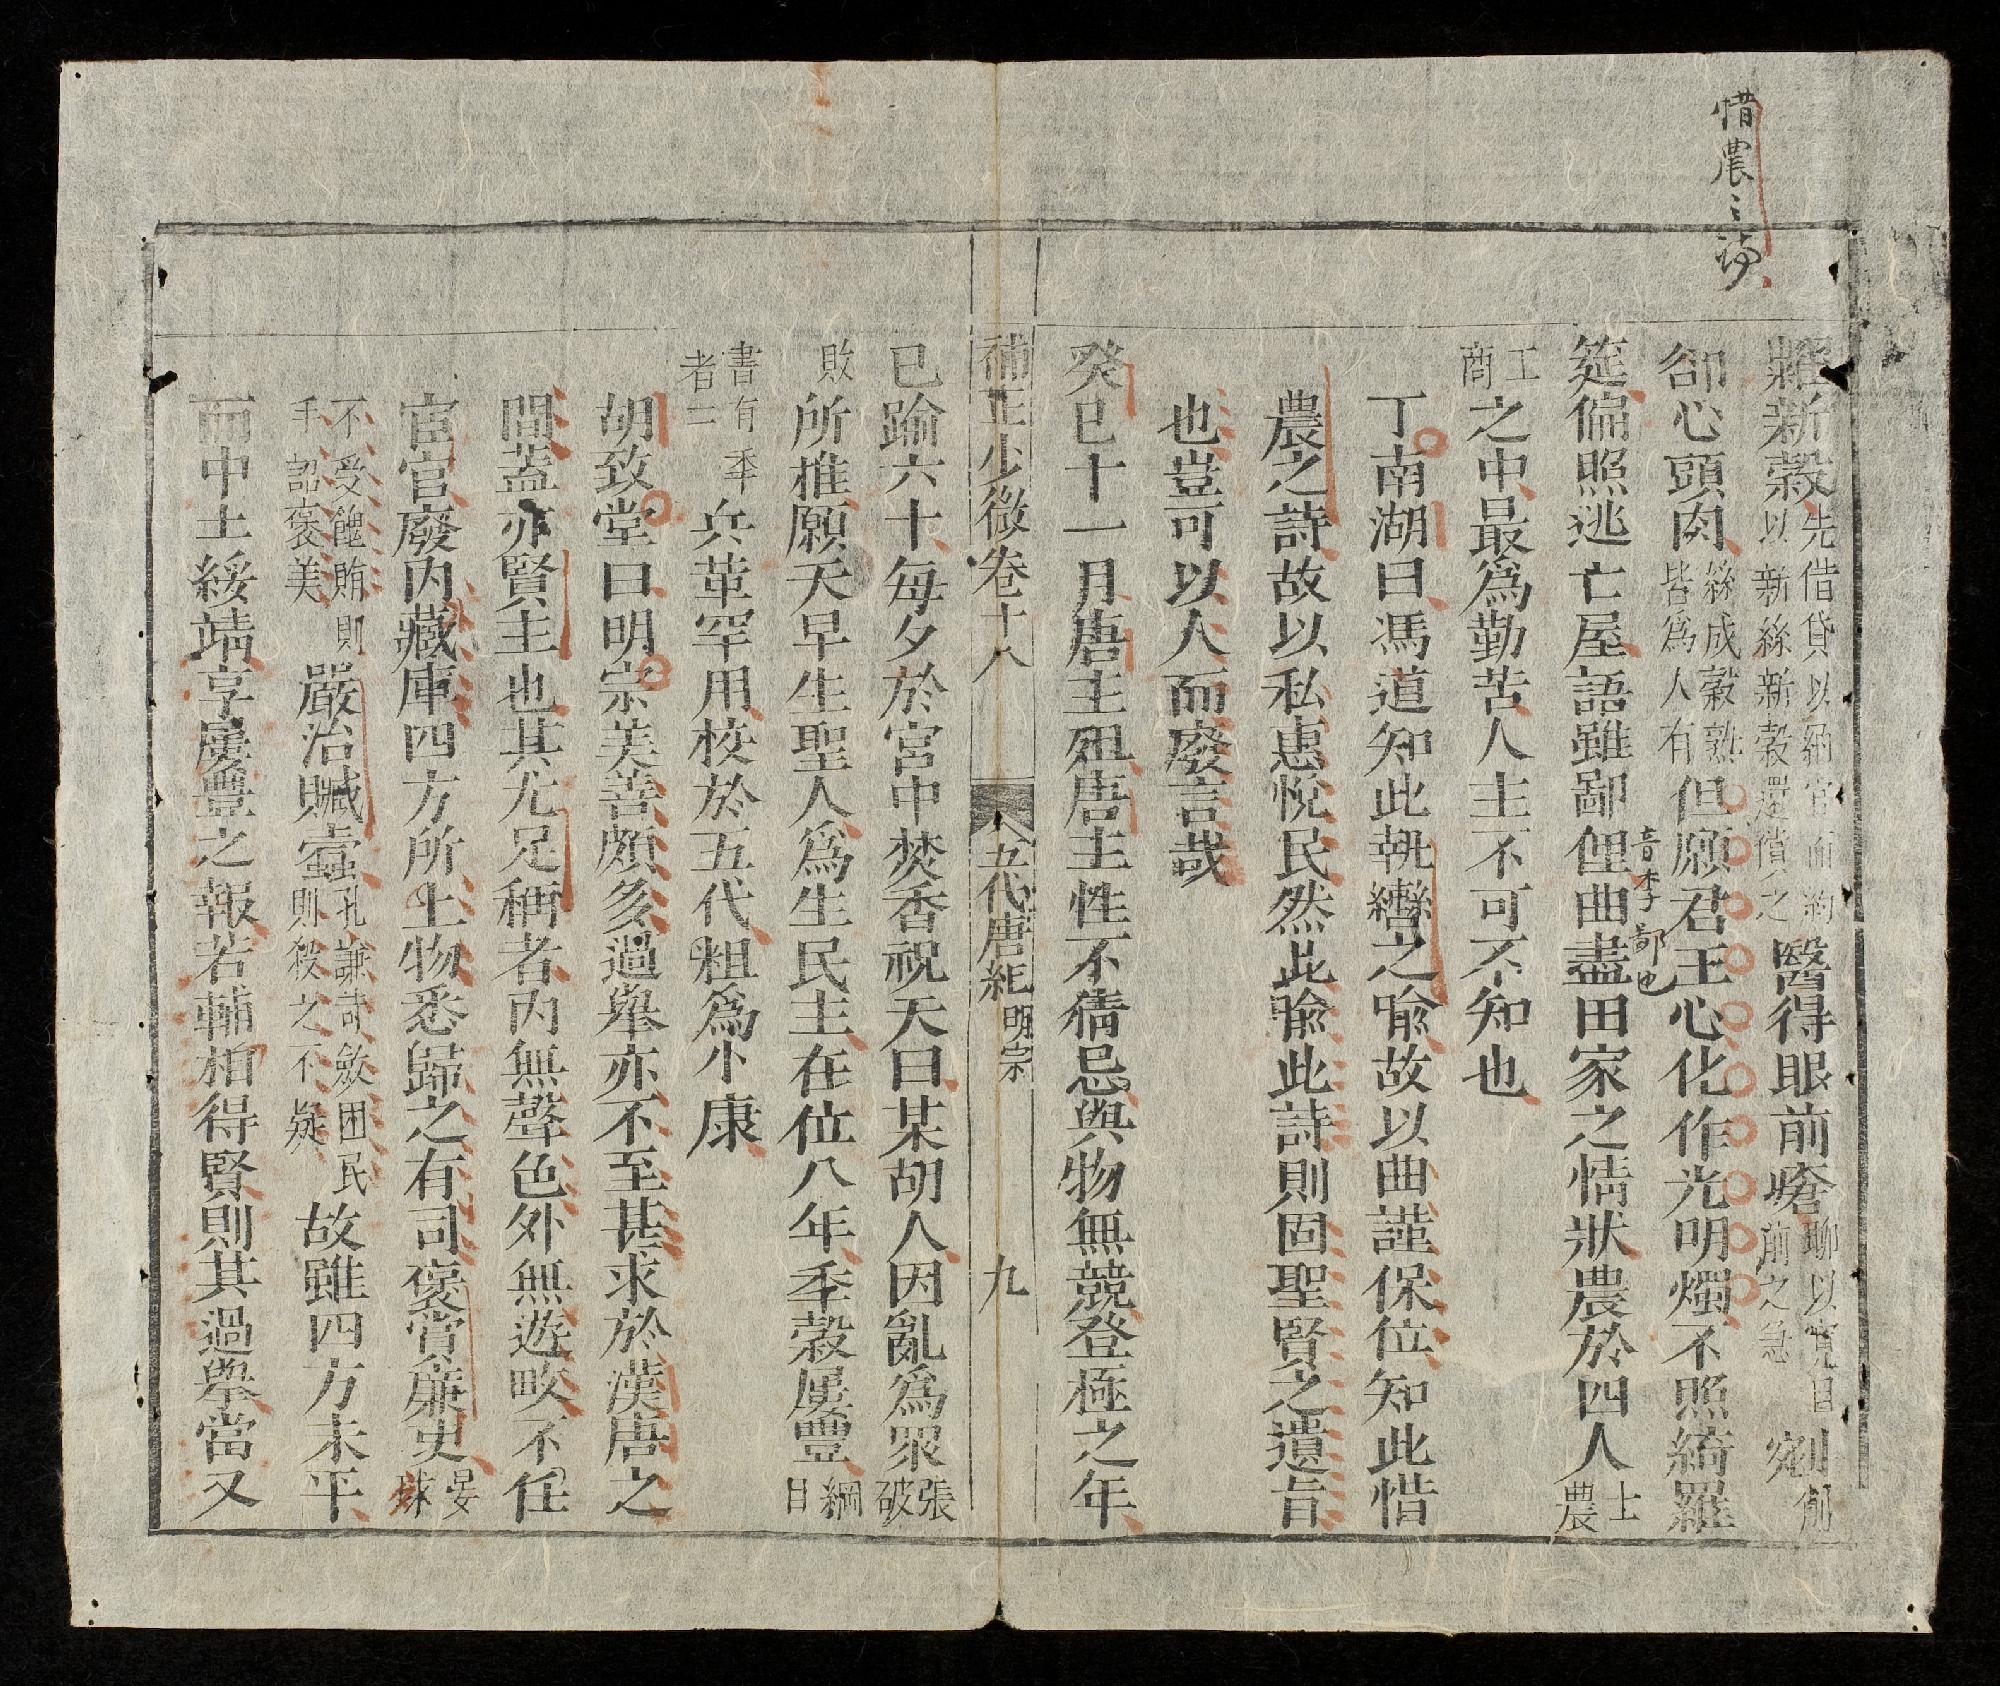 惜農之詩
糶新穀先借貸以納官而約以新絲新穀還償之醫得眼前瘡聊以寬目前之急剜却
心頭肉絲成穀熟皆為人有但願君王心化作光明燭不照綺羅
筵偏照逃亡屋語雖鄙俚曲盡田家之情狀農於四人士農
音李鄙也
工商之中最為勤苦人主不可不知也
丁南湖曰馮道知此執轡之喻故以曲謹保位知此惜
農之詩故以私惠悅民然此喻此詩則固聖賢之遺旨
也豈可以人而廢言哉
癸巳十一月唐主殂唐主性不猜忌與物無競登極之年
補正少微卷十八 五代唐紀明宗 九
已踰六十每夕於宮中焚香祝天曰某胡人因亂為眾張破
敗所推願天早生聖人為生民主在位八年年穀屢豐綱目
書有年者二兵革罕用校於五代粗為小康
胡致堂曰明宗美善頗多過舉亦不至甚求於漢唐之
間蓋亦賢主也其尤足稱者內無聲色外無遊畋不任
宦官廢內藏庫四方所上物悉歸之有司褒賞廉吏
不受餽賄則手詔褒美嚴治贓蠹孔謙苛斂困民則殺之不疑故雖四方未平
而中土綏靖享屢豐之報若輔相得賢則其過舉當又